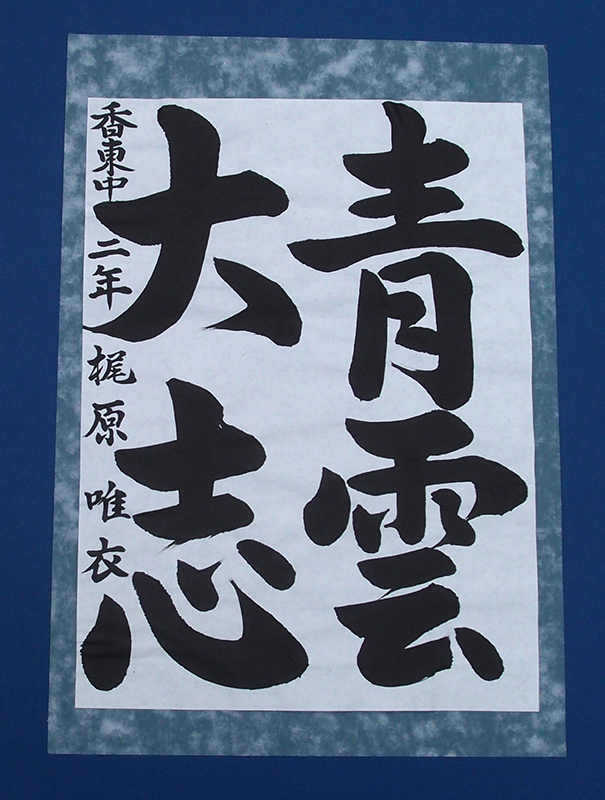 青雲
大志
香東中 二年 梶原 唯衣